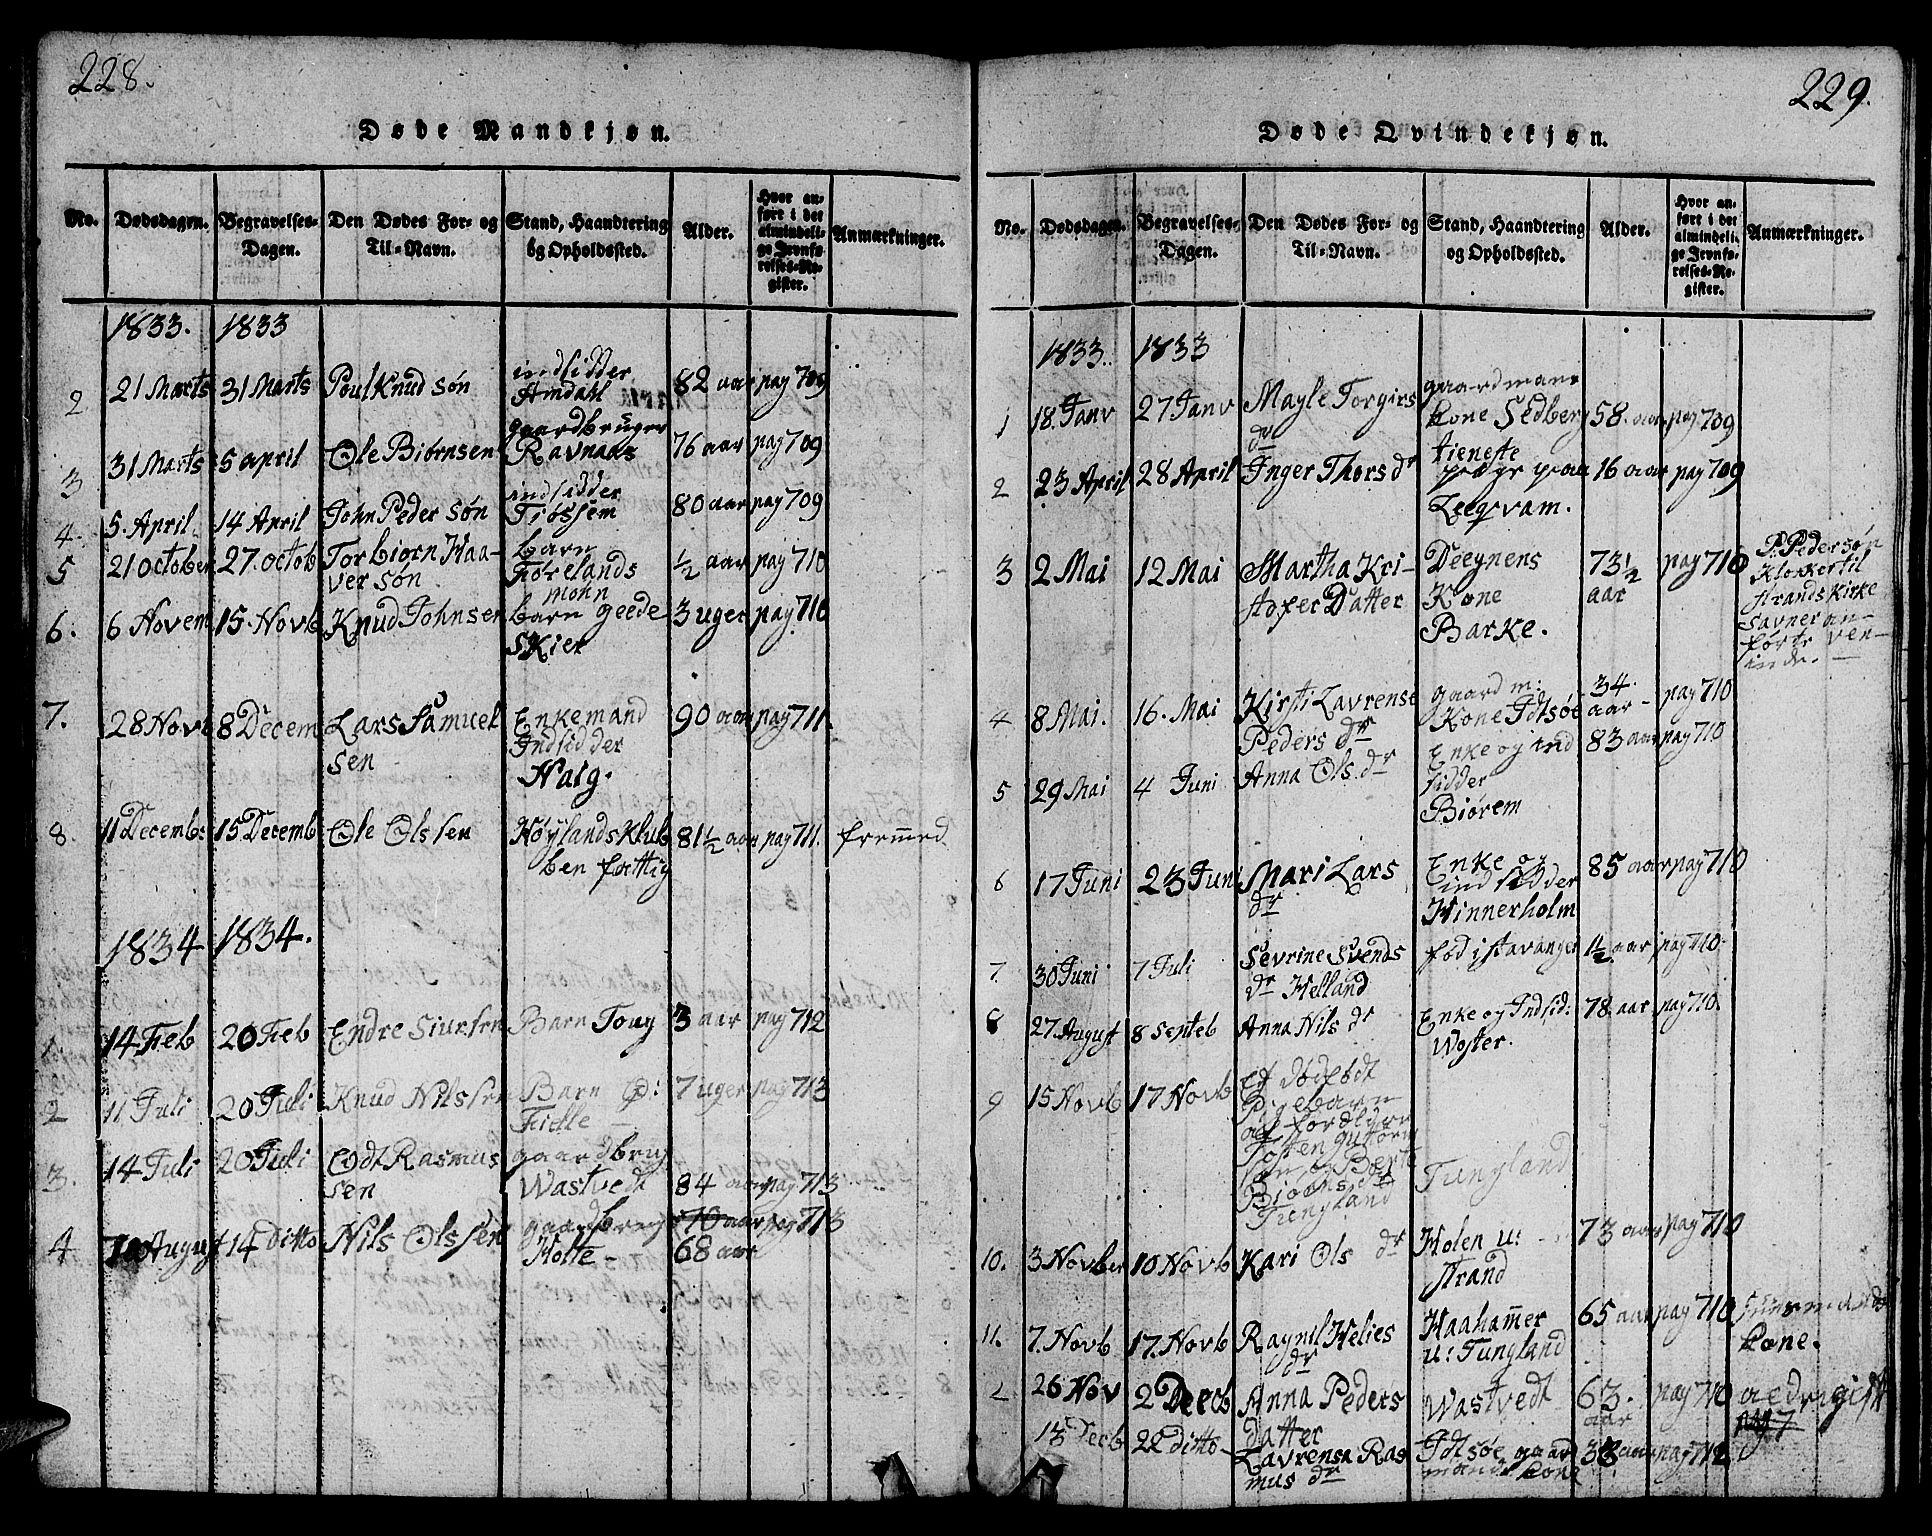 228.
Døde Mandkjøn.
No. Dødsdagen. Begravelses-Dagen. Den Dødes For- og Til-Navn. Stand, Haandtering og Opholdssted. Alder. Hvor anført i det almindelige Jevnførelses-Register. Anmærkninger.
1833. 1833
2 21 Marts 31 Marts Poul Knud søn indsidder Amdahl 82 aar pag 709
3 31 Marts 5 april Ole Biørnsen gaardbruger Ravnaas 76 aar pag 709
4. 5. April. 14 April John Peder søn indsidder Tiøssem 80 aar pag 709
5 21 October 27. octob Torbiørn Haa-
ver søn barn Førelands mohn ½ aar pag 710
6. 6 Novem 15. Novb Knud Johnsen barn geede-
skier 3 uger pag 710
7. 28 Novb 8 Decem Lars Samuel
sen Enkemand
Indsidder
Naig. 90 aar pag 711.
8. 11 Decemb: 15 Decemb Ole Olssen Høylands Klub
ben fattig 81½ aar pag 711. fremmed
1834 1834.
1 14 Feb 20 Feb Endre Siursen Barn Touy 3 aar pag 712
2 11 Juli 20 Juli Knud Nilssen Barn Ø:
Fidlle 7 uger pag 713
3. 14 Juli 20 Juli Odt Rasmus
sen gaardbrug
Wastvedt 84 aar pag 713
4 10 August 14 ditto Nils Olssen gaardbrug
Holle - 70 aar pag 713
68 aar
229.
Døde Qvindekjøn.
No. Dødsdagen. Begravelses-Dagen. Den Dødes For- og Til-Navn. Stand, Haandtering og Opholdssted. Alder. Hvor anført i det almindelige Jevnførelses-Register. Anmærkninger.
1833. 1833
1 18. Janv 27 Janv Mayle Torgirs
dr gaardmans
kone Sedberg 58. aar pag 709
2 23 April 28 April Inger Thors dr tieneste
pige paa
Leeqvam. 16 aar pag 709
3 2 Mai 12 Mai Martha Kri-
stofer Datter Deegnens
Kone
Barke. 73½
aar pag 710 P. Pedersøn
Klokker til
Strands Kirke
savner an-
førte ven-
inde. -
4 8 Mai. 16. Mai Kirsti Lavrense
Peders dr gaard m:
Kone Idtsøe 34.
aar - pag 710
5 29 Mai 4 Juni Anna Ols. dr Enke og ind
sidder
Biørem 83 aar pag 710
6 17 Juni 23 Juni Mari Lars
dr Enke og
indsidder
Hinnerholm 85 aar pag 710
7. 30 Juni 7 Juli Sevrine Svends
dr Helland fød i stavanger 1½ aar pag 710.
8 27 August 8 Septeb Anna Nils dr Enke og Indsid:
Woster. 78 aar pag 710.
9 15 Novb 17 Novb Et dødfødt
Pigebarn
Josten Guttorm
søn og Berte
Biøons dr
Tungland Tungland
10. 3 Novber 10 Novb Kari Ols dr Holen u:
Strand 73 aar pag 710
11. 7. Novb 17. Novb Ragnil Helies
dr Haahammer
u: Tungland 65 aar pag 710
kone.
2 26 Nov 2 Decb Anna Peders
datter Wastvedt 63.
aar pag 710
13 Decb 22 ditto Lavrensa Ras
mus dr Idtsøe gaard
mands kone 33 aar pag 712